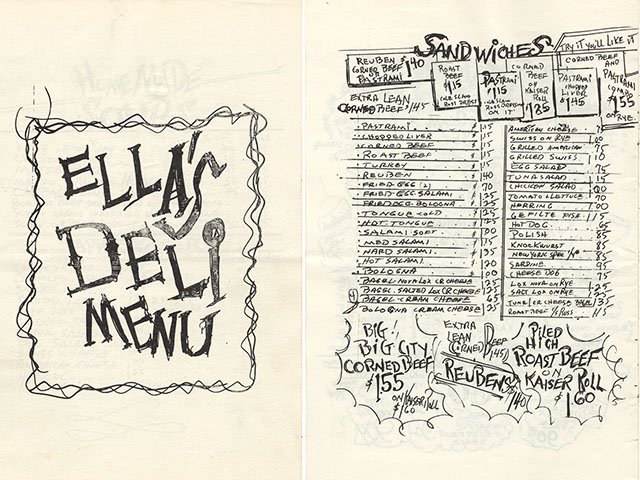 ELLA'S
DELI
MENU
SANDWICHES
TRY IT YOU'LL LIKE IT
REUBEN $1 40
CORNED BEEF
OR
PASTRAMI
ROAST
BEEF
$1 15
PASTRAMI
$1 15
ON IT
CORNED
BEEF
ON
KAISER
ROLL
$1 25
CORNED BEEF AND
PASTRAMI
CHOPPED
LIVER
$1 45
PASTRAMI
COMBO
$1 55
ON RYE
EXTRA LEAN
CORNED BEEF $1 45
PASTRAMI $1 15
CHOPPED LIVER 1 15
CORNED BEEF 1 15
ROAST BEEF 1 15
TURKEY 1 15
REUBEN 1 40
FRIED EGG (2) 70
FRIED EGG SALAMI 1 25
FRIED EGG BOLOGNA 1 25
TONGUE COLD 1 25
HOT TONGUE 1 25
SALAMI SOFT 1 00
MED SALAMI 1 15
HARD SALAMI 1 35
HOT SALAMI 1 20
BOLOGNA 1 00
BAGEL NOVA LOX CR CHEESE 1 35
BAGEL SALTED LOX CR CHEESE 1 25
BAGEL CREAM CHEESE 65
BOLOGNA CREAM CHEESE 1 25
AMERICAN CHEESE 75
SWISS ON RYE 1 00
GRILLED AMERICAN 75
GRILLED SWISS 1 10
EGG SALAD 75
TUNA SALAD 1 15
CHICKEN SALAD 1 00
TOMATO & LETTUCE 70
HERRING 1 00
GEFILTE FISH 1 15
HOT DOG 65
POLISH 85
KNOCKWURST 85
NEW YORK SPEC 1/4# 85
SARDINE 95
CHEESE DOG 75
LOX NOVA ON RYE 1 25
SALT LOX ON RYE 1 25
TUNA CR CHEESE BAGEL 1 35
ROAST BEEF 1/2 RUSS 1 15
BIG!
BIG CITY
CORNED BEEF
$1 55
ON KAISER ROLL
$1 60
EXTRA
LEAN
CORNED BEEF
$1 45
REUBEN
$1 40
PILED
HIGH
ROAST BEEF
ON
KAISER ROLL
$1 60